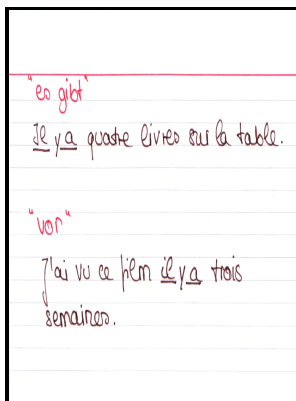 "es gibt"
Il y a quatre livres sur la table.
"vor"
J'ai vu ce film il y a trois
semaines.